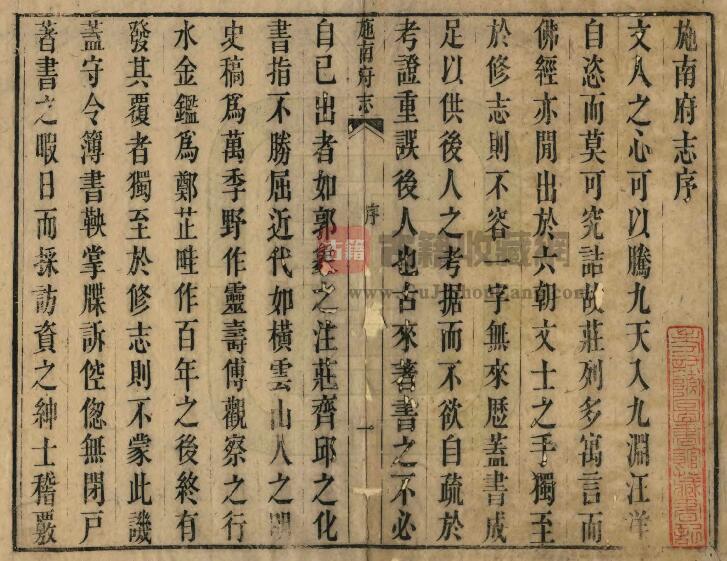 施南府志序
文人之心可以騰九天入九淵汪洋
自恣而莫可究詰故莊列多寓言而
佛經亦閒出於六朝文士之手獨至
於修志則不容一字無來歷蓋書成
足以供後人之考据而不欲自疏於
考證重誤後人也古來著書之不必
施南府志
序
一
自己出者如郭象之注莊齊邱之化
書指不勝屈近代如橫雲山人之明
史稿為萬季野作靈壽傅觀察之行
水金鑑為鄭芷畦作百年之後終有
發其覆者獨至於修志則不蒙此譏
蓋守令簿書鞅掌牒訴倥傯無閉戶
著書之暇日而採訪資之紳士稽覈
古籍
古籍收藏網